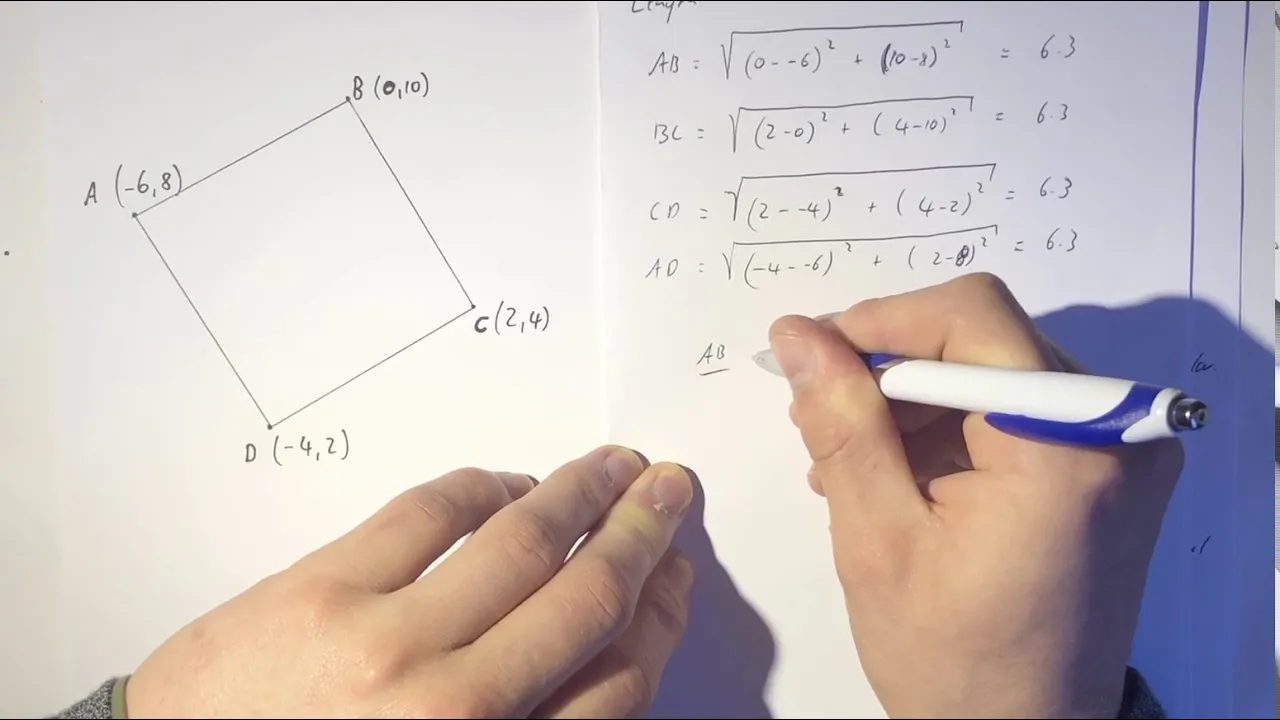 B (0,10)
A (-6,8)
C (2,4)
D (-4,2)
AB = √(0--6)² + (10-8)² = 6.3
BC = √(2-0)² + (4-10)² = 6.3
CD = √(2--4)² + (4-2)² = 6.3
AD = √(-4--6)² + (2-8)² = 6.3
AB